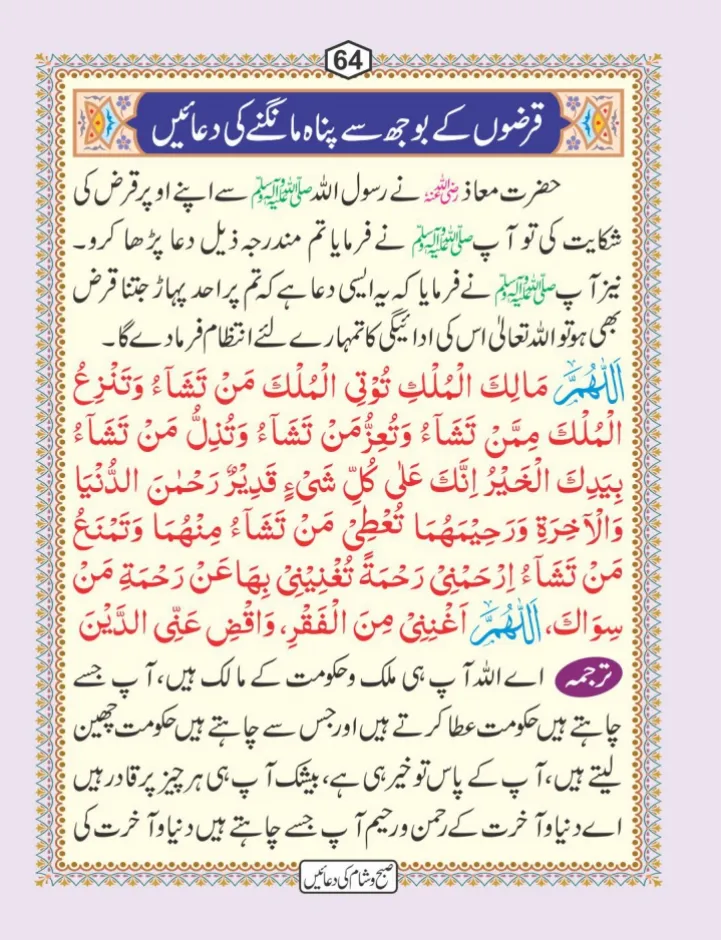 64
قرضوں کے بوجھ سے پناہ مانگنے کی دعائیں
حضرت معاذ رضی اللہ عنہ نے رسول اللہ صلی اللہ علیہ وآلہ وسلم سے اپنے اوپر قرض کی
شکایت کی تو آپ صلی اللہ علیہ وآلہ وسلم نے فرمایا تم مندرجہ ذیل دعا پڑھا کرو۔
نیز آپ صلی اللہ علیہ وآلہ وسلم نے فرمایا کہ یہ ایسی دعا ہے کہ تم پر احد پہاڑ جتنا قرض
بھی ہو تو اللہ تعالیٰ اس کی ادائیگی کا تمہارے لئے انتظام فرما دے گا۔
اَللّٰهُمَّ مَالِكَ الْمُلْكِ تُؤْتِي الْمُلْكَ مَنْ تَشَآءُ وَتَنْزِعُ
الْمُلْكَ مِمَّنْ تَشَآءُ وَتُعِزُّ مَنْ تَشَآءُ وَتُذِلُّ مَنْ تَشَآءُ
بِيَدِكَ الْخَيْرُ اِنَّكَ عَلٰى كُلِّ شَىْءٍ قَدِيْرٌ رَحْمٰنَ الدُّنْيَا
وَالْاٰخِرَةِ وَرَحِيْمَهُمَا تُعْطِىْ مَنْ تَشَآءُ مِنْهُمَا وَتَمْنَعُ
مَنْ تَشَآءُ اِرْحَمْنِىْ رَحْمَةً تُغْنِيْنِىْ بِهَا عَنْ رَحْمَةِ مَنْ
سِوَاكَ، اَللّٰهُمَّ اَغْنِنِىْ مِنَ الْفَقْرِ، وَاقْضِ عَنِّى الدَّيْنَ
ترجمہ اے اللہ آپ ہی ملک وحکومت کے مالک ہیں، آپ جسے
چاہتے ہیں حکومت عطا کرتے ہیں اور جس سے چاہتے ہیں حکومت چھین
لیتے ہیں، آپ کے پاس تو خیر ہی ہے، بیشک آپ ہی ہر چیز پر قادر ہیں
اے دنیا وآخرت کے رحمن ورحیم آپ جسے چاہتے ہیں دنیا وآخرت کی
صبح وشام کی دعائیں